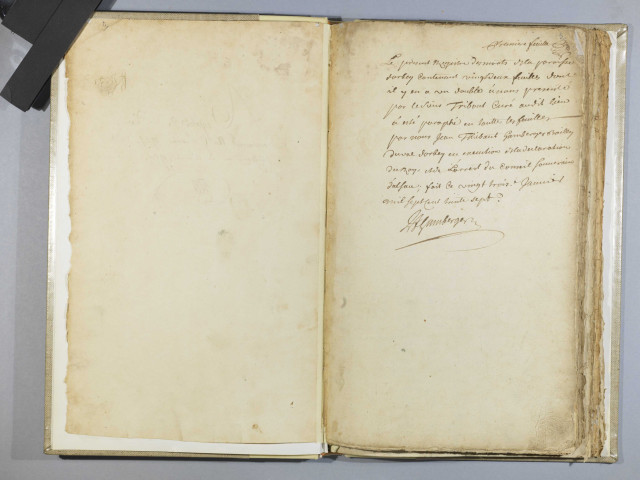 Premiere feuille
Le present Registre des morts de la parroisse
dorbey contenant vingt deux feuilles dont
il y en a un double à nous presenté
par le Sieur Thibaut Curé audit lieu
a esté paraphé en touttes les feuilles
par nous Jean Thibaut
du val dorbey en execution de la declaration
du Roy et de L'arrest du Conseil Souverain
dalsace, fait ce vingt trois Janvier
mil sept cent trente sept